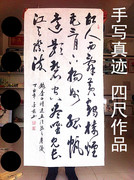 手写真迹 四尺作品
故人西辞黄鹤楼煙
花三月下扬州孤帆
远影碧空尽唯见长
江天际流